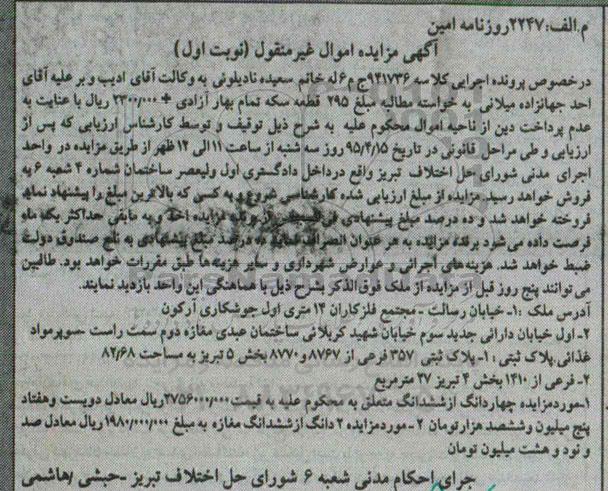 م.الف:۲۲۴۷روزنامه امین
آگهی مزایده اموال غیرمنقول (نوبت اول)
درخصوص پرونده اجرایی کلاسه ۹۴۱۷۳۶ج ع۶له خانم سعیده نادیلوئی به وکالت آقای ادیب وبر علیه آقای
احد جهانزاده میلانی به خواسته مطالبه مبلغ ۲۹۵ قطعه سکه تمام بهار آزادی + ۲۳۰۰/۰۰۰ ریال با عنایت به
عدم پرداخت دین از ناحیه اموال محکوم علیه به شرح ذیل توقیف و توسط کارشناس ارزیابی که پس از
ارزیابی و طی مراحل قانونی در تاریخ ۹۵/۴/۱۵روز سه شنبه از ساعت ۱۱الی ۱۲ ظهر از طریق مزایده در واحد
اجرای مدنی شورای حل اختلاف تبریز واقع درداخل دادگستری اول ولیعصر ساختمان شماره ۴ شعبه ۶ به
فروش خواهد رسید. مزایده از مبلغ ارزیابی شده کارشناسی شروع و به کسی که بالاترین مبلغ را پیشنهاد نماید
فروخته خواهد شد و ده درصد مبلغ پیشنهادی فی المجلس از برنده مزایده اخذ و به مابقی حداکثر یکه ماه
فرصت داده می شود برنده مزایده به هر عنوان انصراف نماید ده درصد مبلغ پیشنهادی به نفع صندوق دولت
ضبط خواهد شد. هزینه‌های اجرائی و عوارض شهرداری و سایر هزینه‌ها طبق مقررات خواهد بود. طالبین
می توانند پنج روز قبل از مزایده از ملک فوق الذکر بشرح ذیل با هماهنگی این واحد بازدید نمایند.
آدرس ملک :۱- خیابان رسالت - مجتمع فلزکاران ۱۲ متری اول جوشکاری آرکون
۲-اول خیابان دارائی جدید سوم خیابان شهید کربلائی ساختمان عبدی مغازه دوم سمت راست -سوپرمواد
غذائی.پلاک ثبتی : ۱- پلاک ثبتی ۳۵۷ فرعی از ۸۷۶۷و۸۷۷۰ بخش ۵ تبریز به مساحت ۸۲/۶۸
۲- فرعی از ۱۴۱۰ بخش ۴ تبریز ۲۷ مترمربع
۱-موردمزایده چهاردانگ ازششدانگ متعلق به محکوم علیه به قیمت ۲۷۵۶۰۰۰/۰۰۰ریال معادل دویست وهفتاد
پنج میلیون وششصد هزارتومان ۲- موردمزایده ۲دانگ ازششدانگ مغازه به مبلغ ۱۹۸۰/۰۰۰/۰۰۰ریال معادل صد
و نود و هشت میلیون تومان
جرای احکام مدنی شعبه ۶ شورای حل اختلاف تبریز -حبشی /هاشمی